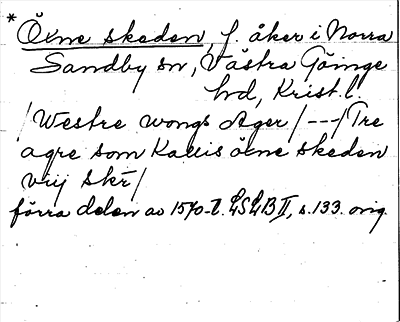 * Öene skeden, f. åker i Norra
Sandby sn, Västra Göinge
hd, Krist. l.
/Westre wongs Ager/---/Tre
agre som Kallis öene skeden
vij skr̄/
förra delen av 1570-t. LSLB II, s. 133. orig.